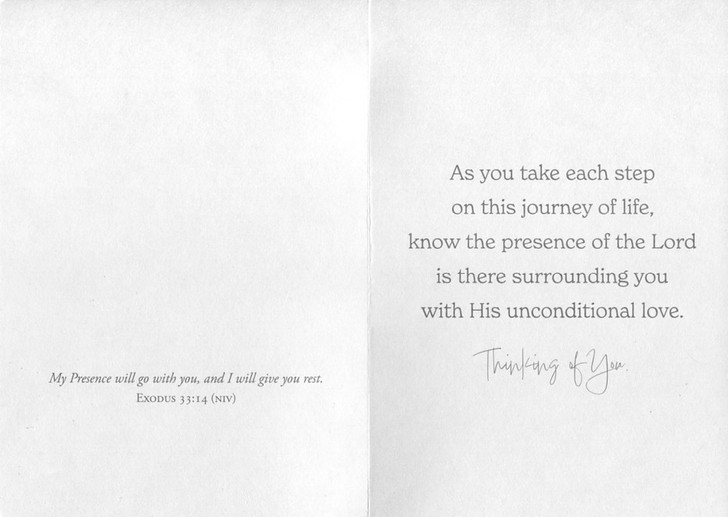 My Presence will go with you, and I will give you rest.
Exodus 33:14 (NIV)
As you take each step
on this journey of life,
know the presence of the Lord
is there surrounding you
with His unconditional love.
Thinking of You.